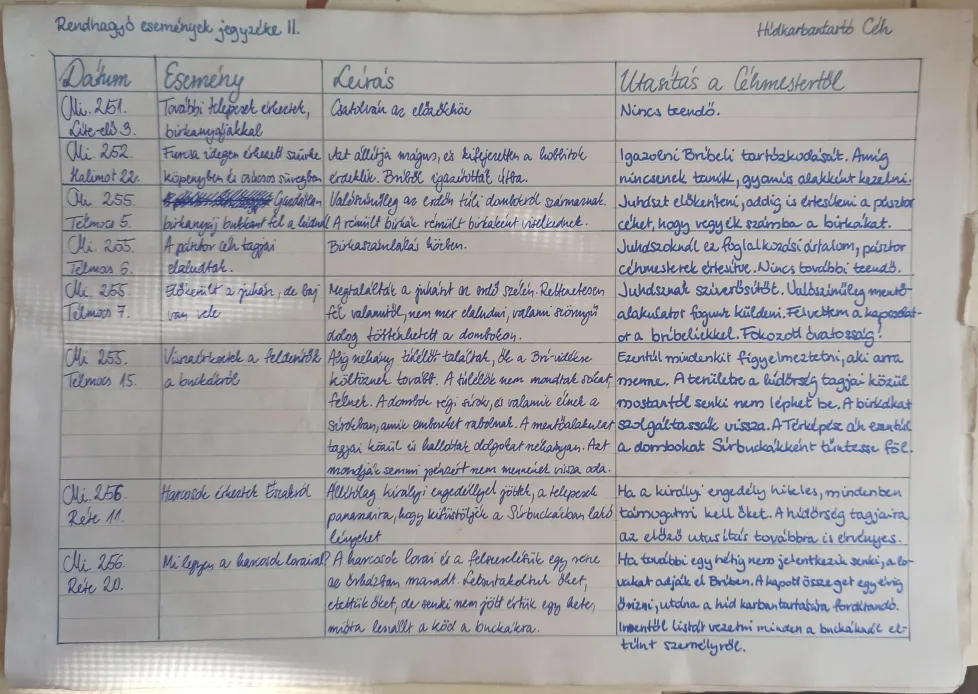 Rendhagyó események jegyzéke II.
Hídkarbantartó Céh
Dátum
Esemény
Leírás
Utasítás a Céhmestertől
Mi. 251.
Lite-elő 3.
További telepesek érkeztek,
birkanyájakkal
Csatolván az előzőkhöz
Nincs teendő.
Mi. 252.
Halimot 22.
Furcsa idegen érkezett szürke
köpenyben és csúcsos süvegben
Azt állítja mágus, és kifejezetten a hobbitok
érdeklik. Briből igazították útba.
Igazolni Bribeli tartózkodását. Amíg
nincsenek tanúk, gyanús alakként kezelni.
Mi. 255.
Telmos 5.
Gazdátlan
birkanyáj bukkant fel a hídnál
Valószínűleg az erdőn túli dombokról származnak.
A rémült birkák rémült birkaként viselkednek.
Juhászt előkeríteni, addig is értesíteni a pásztor
céhet, hogy vegyék számba a birkákat.
Mi. 255.
Telmos 6.
A pásztor céh tagjai
elaludtak.
Birkaszámlálás közben.
Juhászoknál ez foglalkozási ártalom, pásztor
céhmesterek értesítve. Nincs további teendő.
Mi. 255
Telmos 7.
Előkerült a juhász, de baj
van vele
Megtalálták a juhászt az erdő szélén. Rettenetesen
fél valamitől, nem mer elaludni, valami szörnyű
dolog történhetett a dombokon.
Juhásznak szíverősítőt. Valószínűleg mentő-
alakulatot fogunk küldeni. Felvettem a kapcsolat-
ot a bribeliekkel. Fokozott óvatosság!
Mi. 255.
Telmos 15.
Visszaérkeztek a felderítők
a buckákról
Alig néhány túlélőt találtak, ők a Bri-vidékre
költöznek tovább. A túlélők nem mondtak sokat,
félnek. A dombok régi sírok, és valamik élnek a
sírokban, amik embereket rabolnak. A mentőalakulat
tagjai közül is hallottak dolgokat néhányan. Azt
mondják semmi pénzért nem mennének vissza oda.
Ezentúl mindenkit figyelmeztetni, aki arra
menne. A területre a hídőrség tagjai közül
mostantól senki nem léphet be. A birkákat
szolgáltassák vissza. A Térképész céh ezentúl
a dombokat Sírbuckákként tüntesse föl.
Mi. 256.
Réte 11.
Harcosok érkeztek Északról
Állítólag királyi engedéllyel jöttek, a telepesek
panaszaira, hogy kifüstöljék a Sírbuckákban lakó
lényeket
Ha a királyi engedély hiteles, mindenben
támogatni kell őket. A hídőrség tagjaira
az előző utasítás továbbra is érvényes.
Mi. 256.
Réte 20.
Mi legyen a harcosok lovaival?
A harcosok lovai és a felszerelésük egy része
az őrházban maradt. Lecsutakoltuk őket,
etettük őket, de senki nem jött értük egy hete,
mióta leszállt a köd a buckákra.
Ha további egy hétig nem jelentkezik senki, a lo-
vakat adják el Briben. A kapott összeget egy évig
őrizni, utána a híd karbantartására fordítandó.
Innentől listát vezetni minden a buckáknál el-
tűnt személyről.